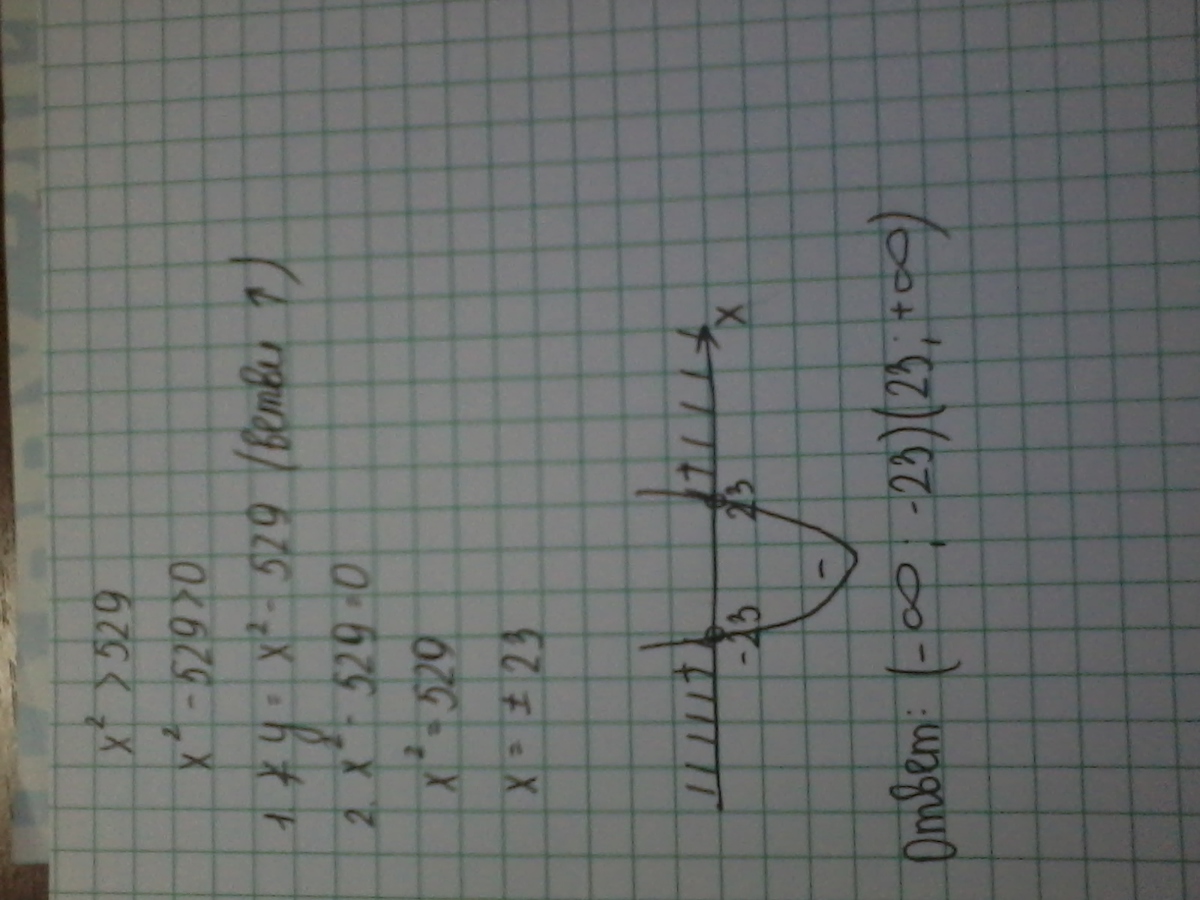 x² > 529
x² - 529 > 0
1. y = x² - 529 (ветви ↑)
2. x² - 529 = 0
x² = 529
x = ± 23
+ - +
-23 23 x
Ответ: (-∞; -23)(23; +∞)